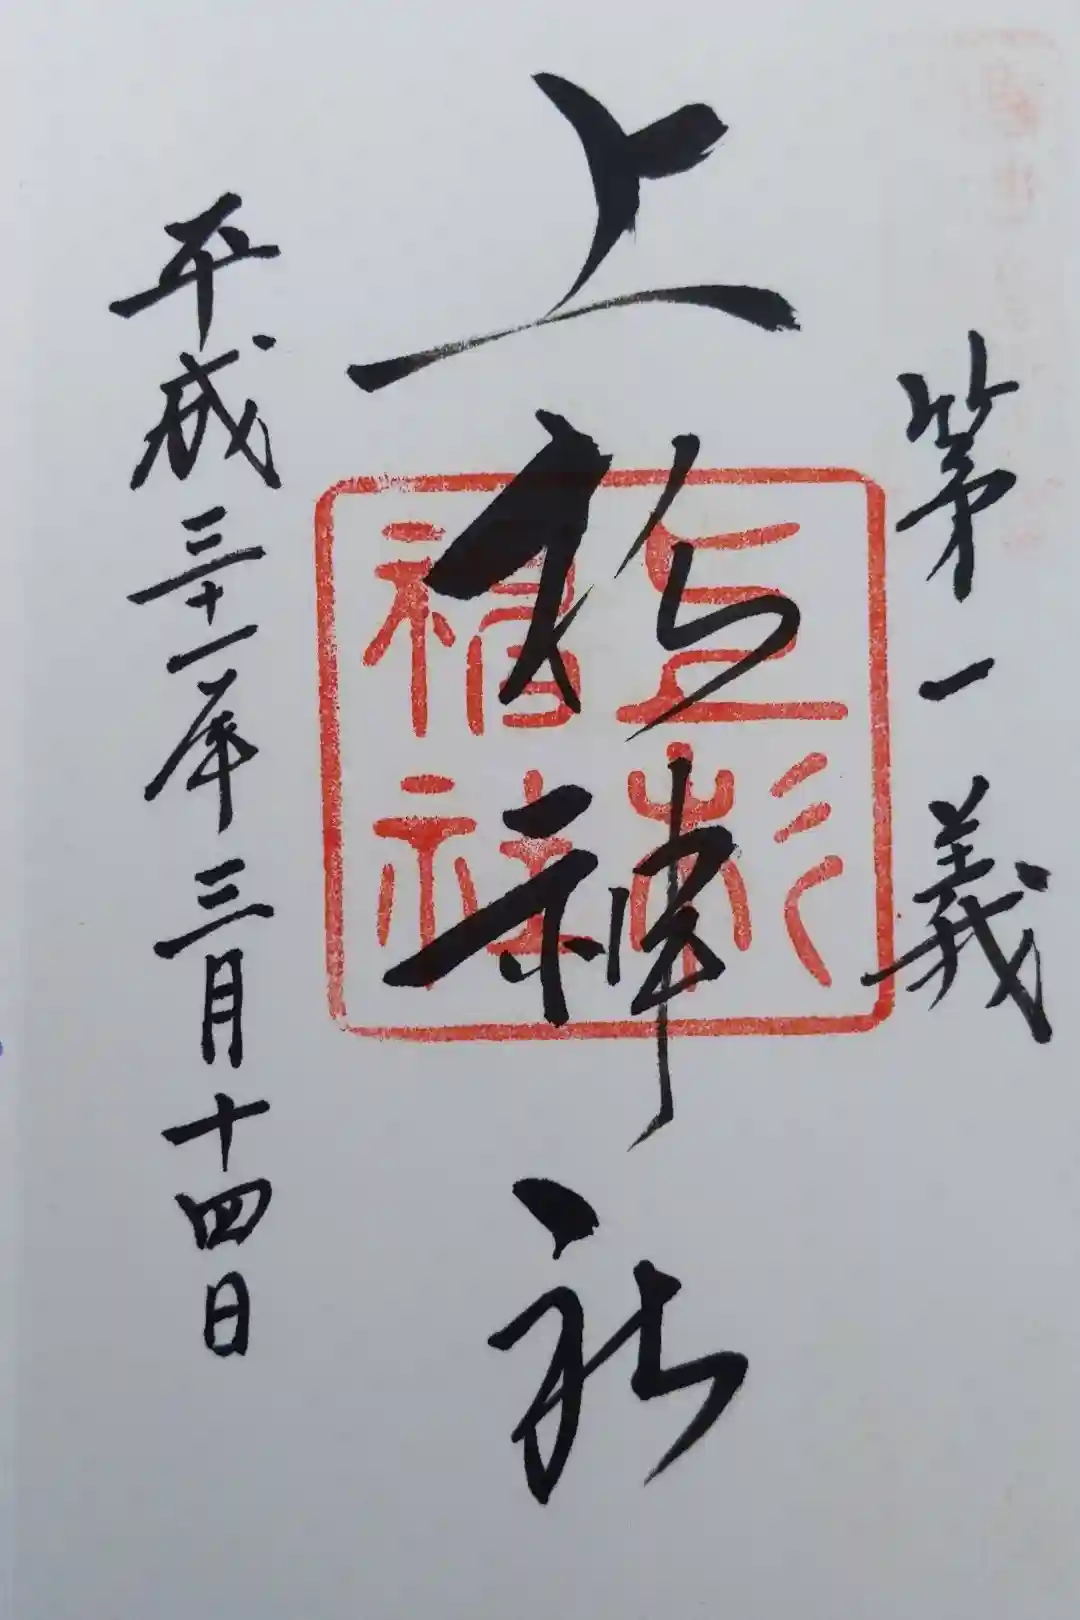 第一義
上杉神社
上杉
社
平成三十一年三月十四日